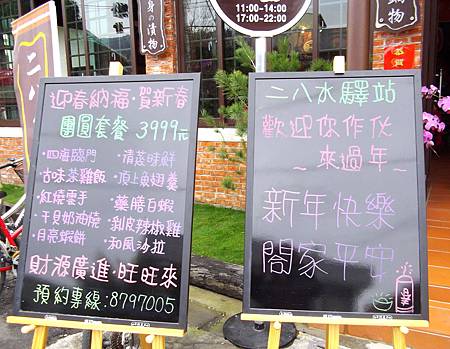 11:00-14:00
17:00-22:00
迎春納福·賀新春
團圓套餐 3999元
·四海臨門 ·清蒸時鮮
·古味茶雞飯 ·頂上魚翅羹
·紅燒雪手 ·藥膳白蝦
·干貝奶油燒 ·剝皮辣椒雞
·月亮蝦餅 ·和風沙拉
財源廣進·旺旺來
預約專線:8797005
二八水驛站
歡迎你作伙
~來過年~
新年快樂
閤家平安